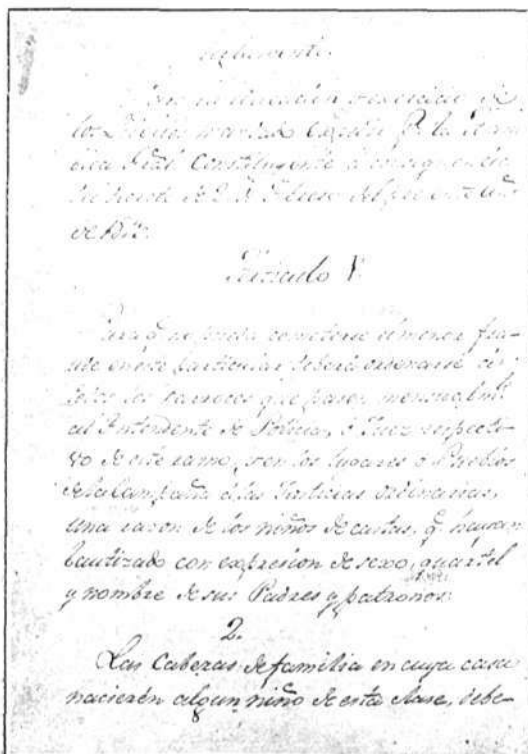 Reglamento.
Para la educación y exercicio de
los Libertos sancionado por la Asam-
blea Gral Constituyente a conseqüencia
del decreto de 2 de Febrero del presente año
de 1813.
Articulo 1.
Para q.e no pueda cometerse el menor frau-
de en este particular deberá ordenarse
á todos los parrocos que pasen mensualm.te
al Intendente de Policia, ó Juez respecti-
vo de este ramo, y en los lugares ó Pueblos
de la Campaña á las Justicias ordinarias,
una razon de los niños de castas, q. hayan
bautizado con expresion de sexo, quartel
y nombre de sus Padres y patronos.
2.
Las Cabezas de familia en cuya casa
nacieren algun niño de esta clase, debe-